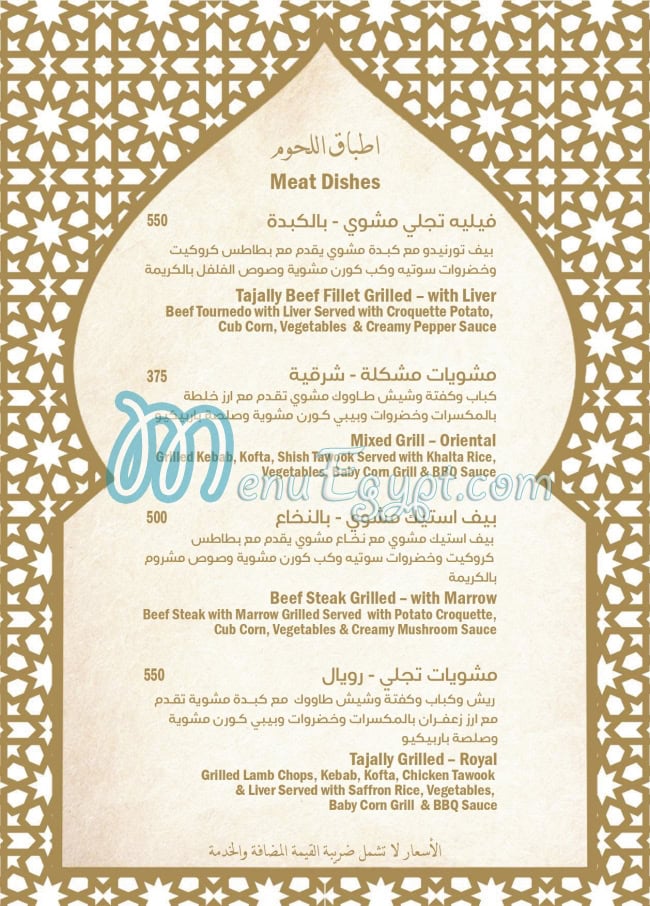 اطباق اللحوم
Meat Dishes
فيليه تجلي مشوي - بالكبدة 550
بيف تورنيدو مع كبدة مشوي يقدم مع بطاطس كروكيت
وخضروات سوتيه وكب كورن مشوية وصوص الفلفل بالكريمة
Tajally Beef Fillet Grilled – with Liver
Beef Tournedo with Liver Served with Croquette Potato,
Cub Corn, Vegetables & Creamy Pepper Sauce
مشويات مشكلة - شرقية 375
كباب وكفتة وشيش طاووك مشوي تقدم مع ارز خلطة
بالمكسرات وخضروات وبيبي كورن مشوية وصلصة باربيكيو
Mixed Grill – Oriental
Grilled Kebab, Kofta, Shish Tawook Served with Khalta Rice,
Vegetables, Baby Corn Grill & BBQ Sauce
MenuEgypt.com
بيف استيك مشوي - بالنخاع 500
بيف استيك مشوي مع نخاع مشوي يقدم مع بطاطس
كروكيت وخضروات سوتيه وكب كورن مشوية وصوص مشروم
بالكريمة
Beef Steak Grilled – with Marrow
Beef Steak with Marrow Grilled Served with Potato Croquette,
Cub Corn, Vegetables & Creamy Mushroom Sauce
مشويات تجلي - رويال 550
ريش وكباب وكفتة وشيش طاووك مع كبدة مشوية تقدم
مع ارز زعفران بالمكسرات وخضروات وبيبي كورن مشوية
وصلصة باربيكيو
Tajally Grilled – Royal
Grilled Lamb Chops, Kebab, Kofta, Chicken Tawook
& Liver Served with Saffron Rice, Vegetables,
Baby Corn Grill & BBQ Sauce
الأسعار لا تشمل ضريبة القيمة المضافة والخدمة